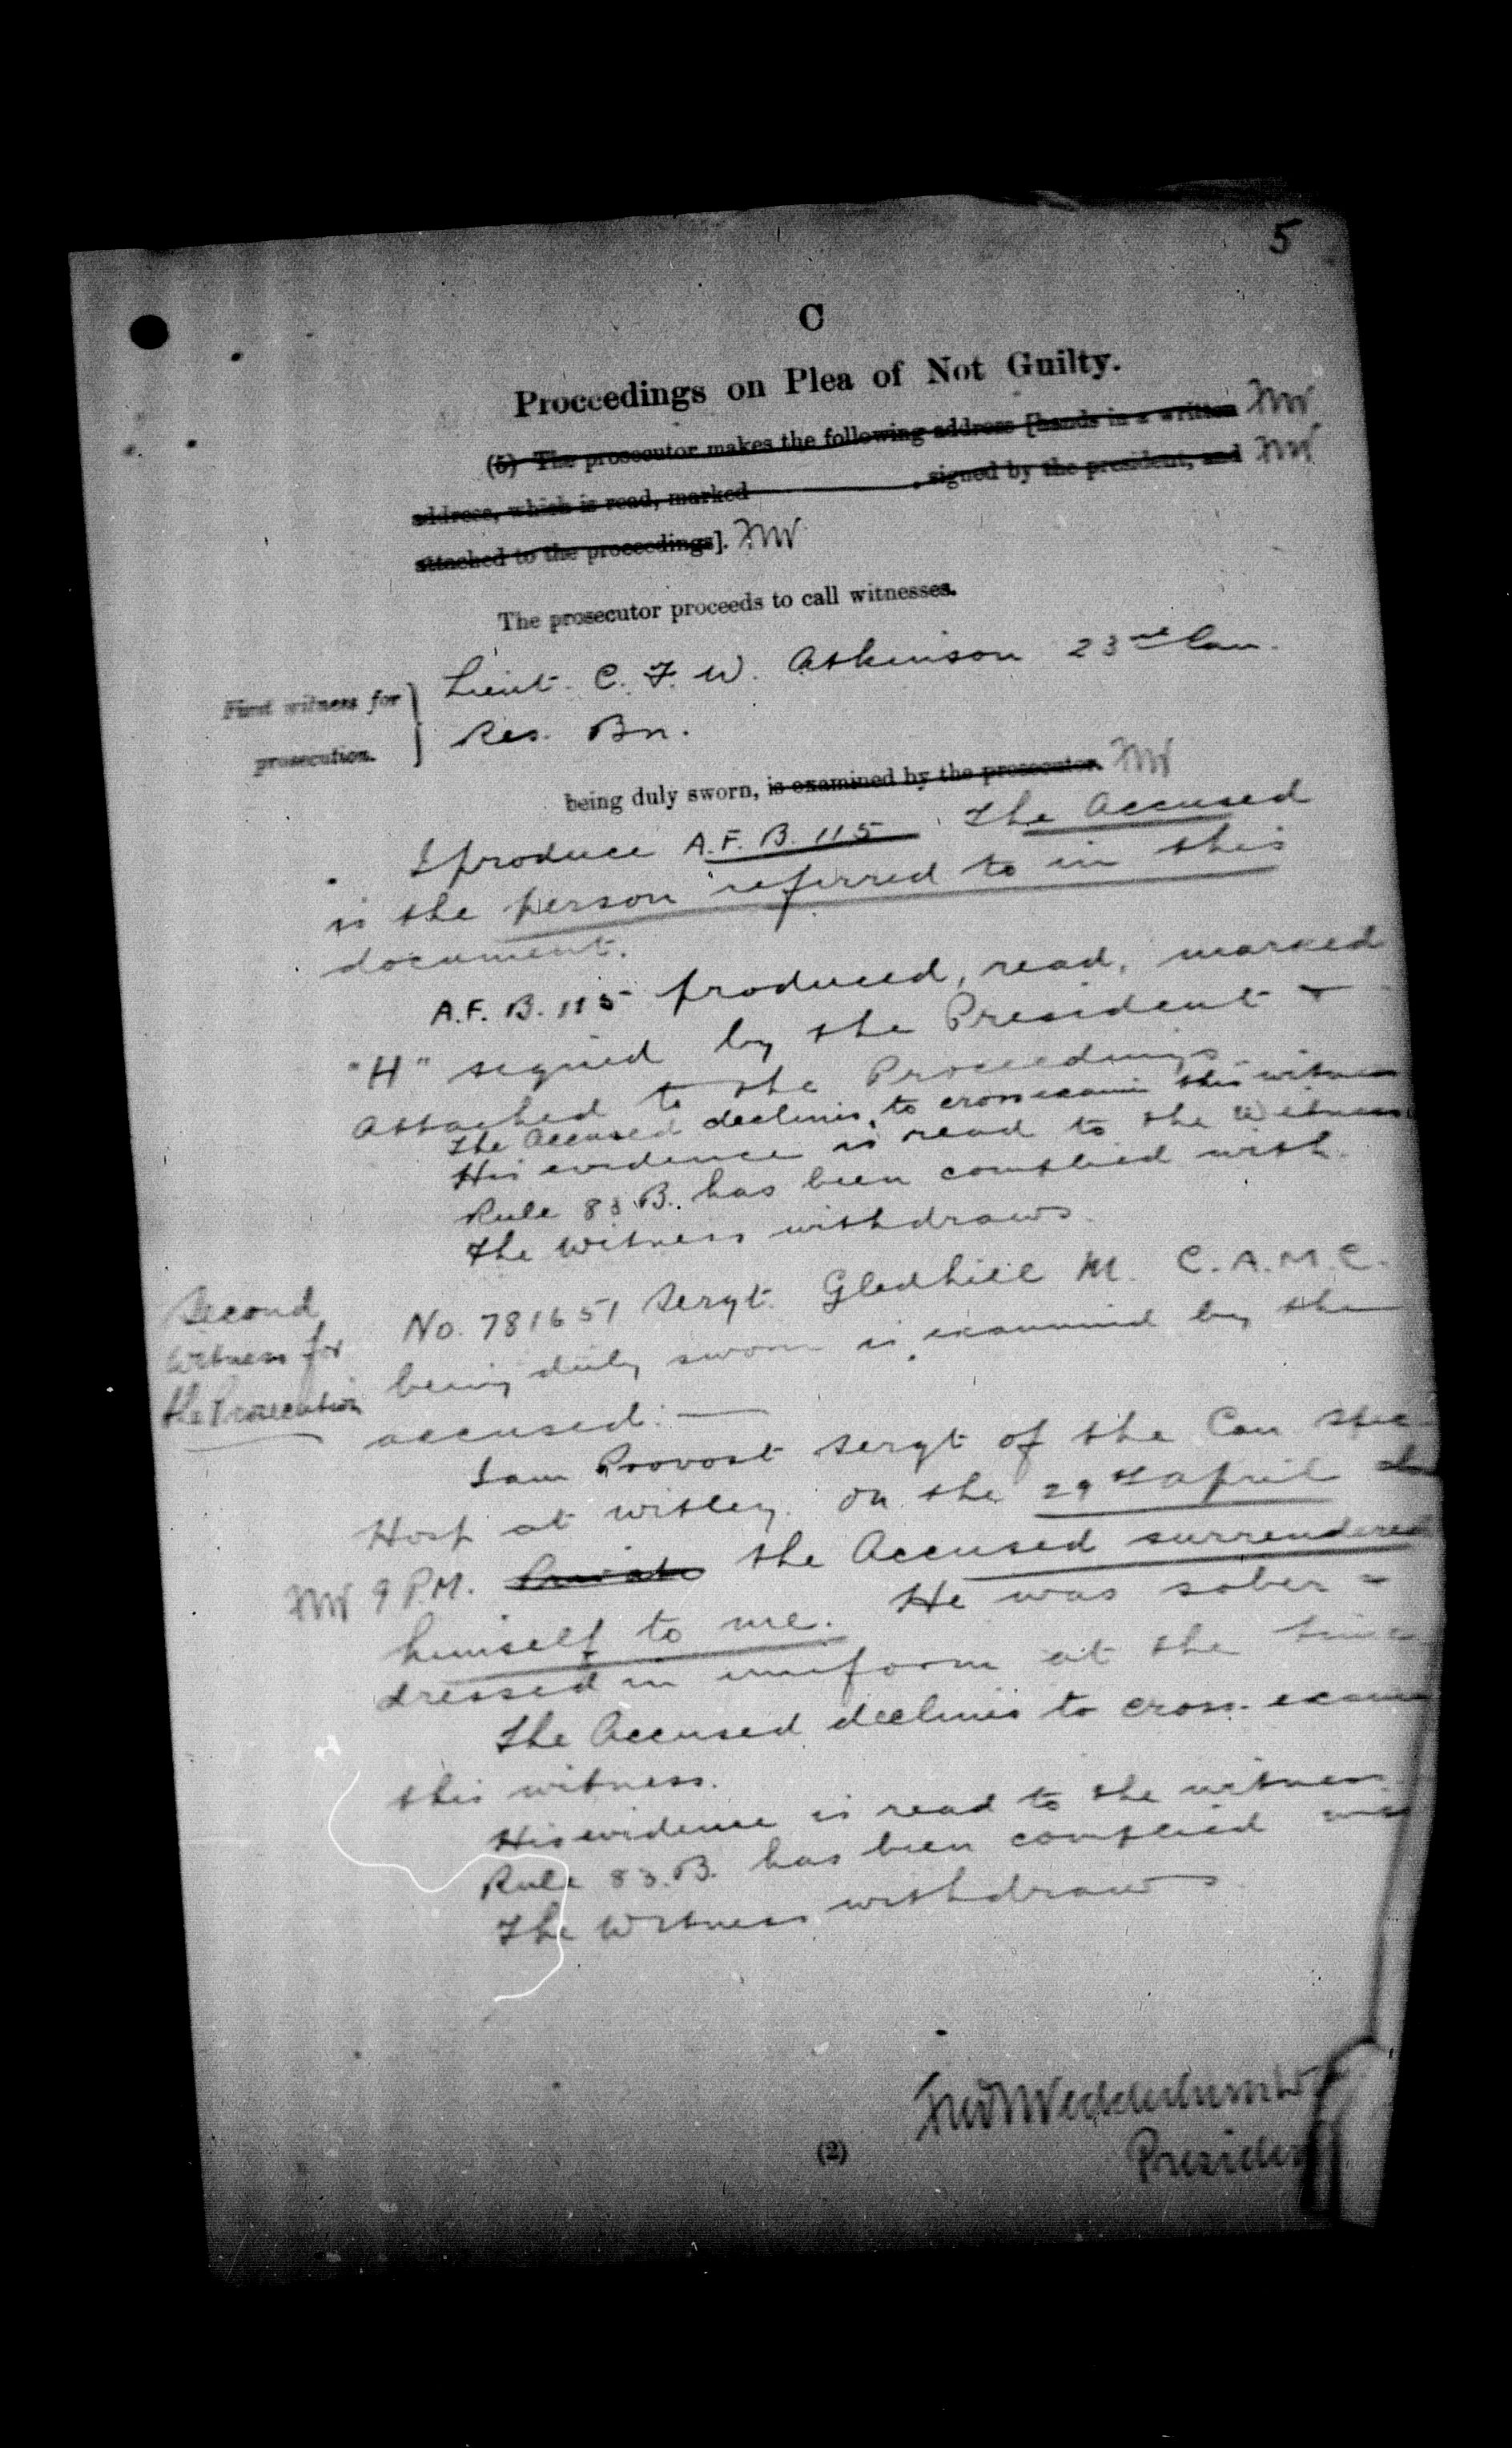 5
C
Proceedings on Plea of Not Guilty.
(5) The prosecutor makes the following address [hands in a written
address, which is read, marked , signed by the president, and
attached to the proceedings].
The prosecutor proceeds to call witnesses.
First witness for
prosecution.
Lieut. C. F. W. Atkinson 23rd Can.
Res. Bn.
being duly sworn, is examined by the prosecutor.
I produce A.F. B. 115 The Accused
is the person referred to in this
document.
A.F. B. 115 produced, read, marked
"H" signed by the President +
attached to the Proceedings.
The Accused declines to cross examine this witness
His evidence is read to the Witness
Rule 83 B. has been complied with.
The Witness withdraws.
Second
Witness for
the Prosecution
No. 781651 Sergt. Gledhill M. C.A.M.C.
being duly sworn is examined by the
accused:—
I am Provost Sergt of the Can Spec
Hosp at Witley. On the 29th April
9 P.M. Private the Accused surrendered
himself to me. He was sober +
dressed in uniform at the time
The Accused declines to cross-exam
this witness.
His evidence is read to the witness.
Rule 83.B. has been complied
The Witness withdraws
(2)
President